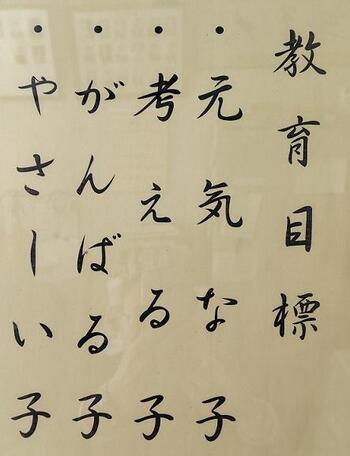 教育目標
・元気な子
・考える子
・がんばる子
・やさしい子